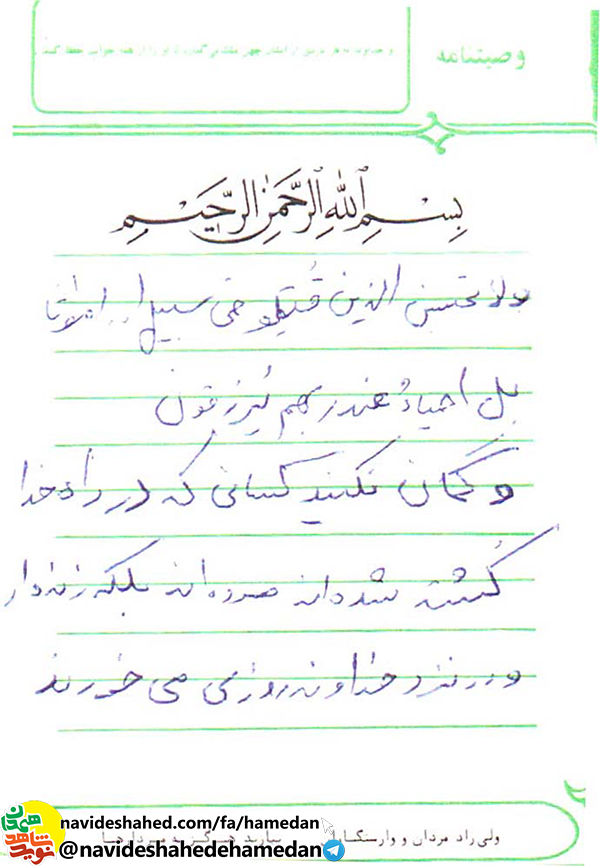 وصیتنامه
بسم الله الرحمن الرحیم
ولا تحسبن الذین قُتِلو فی سبیل الله امواتا
بل احیاءُ عند ربهم یُرزقون
و گمان نکنید کسانی که در راه خدا
کُشته شده‌اند مرده‌اند بلکه زنده‌اند
و در نزد خداوند روزی می خورند
ولی راد مردان و وارستگان
navideshahed.com/fa/hamedan
@navideshahedehamedan
نوید شاهد همدان